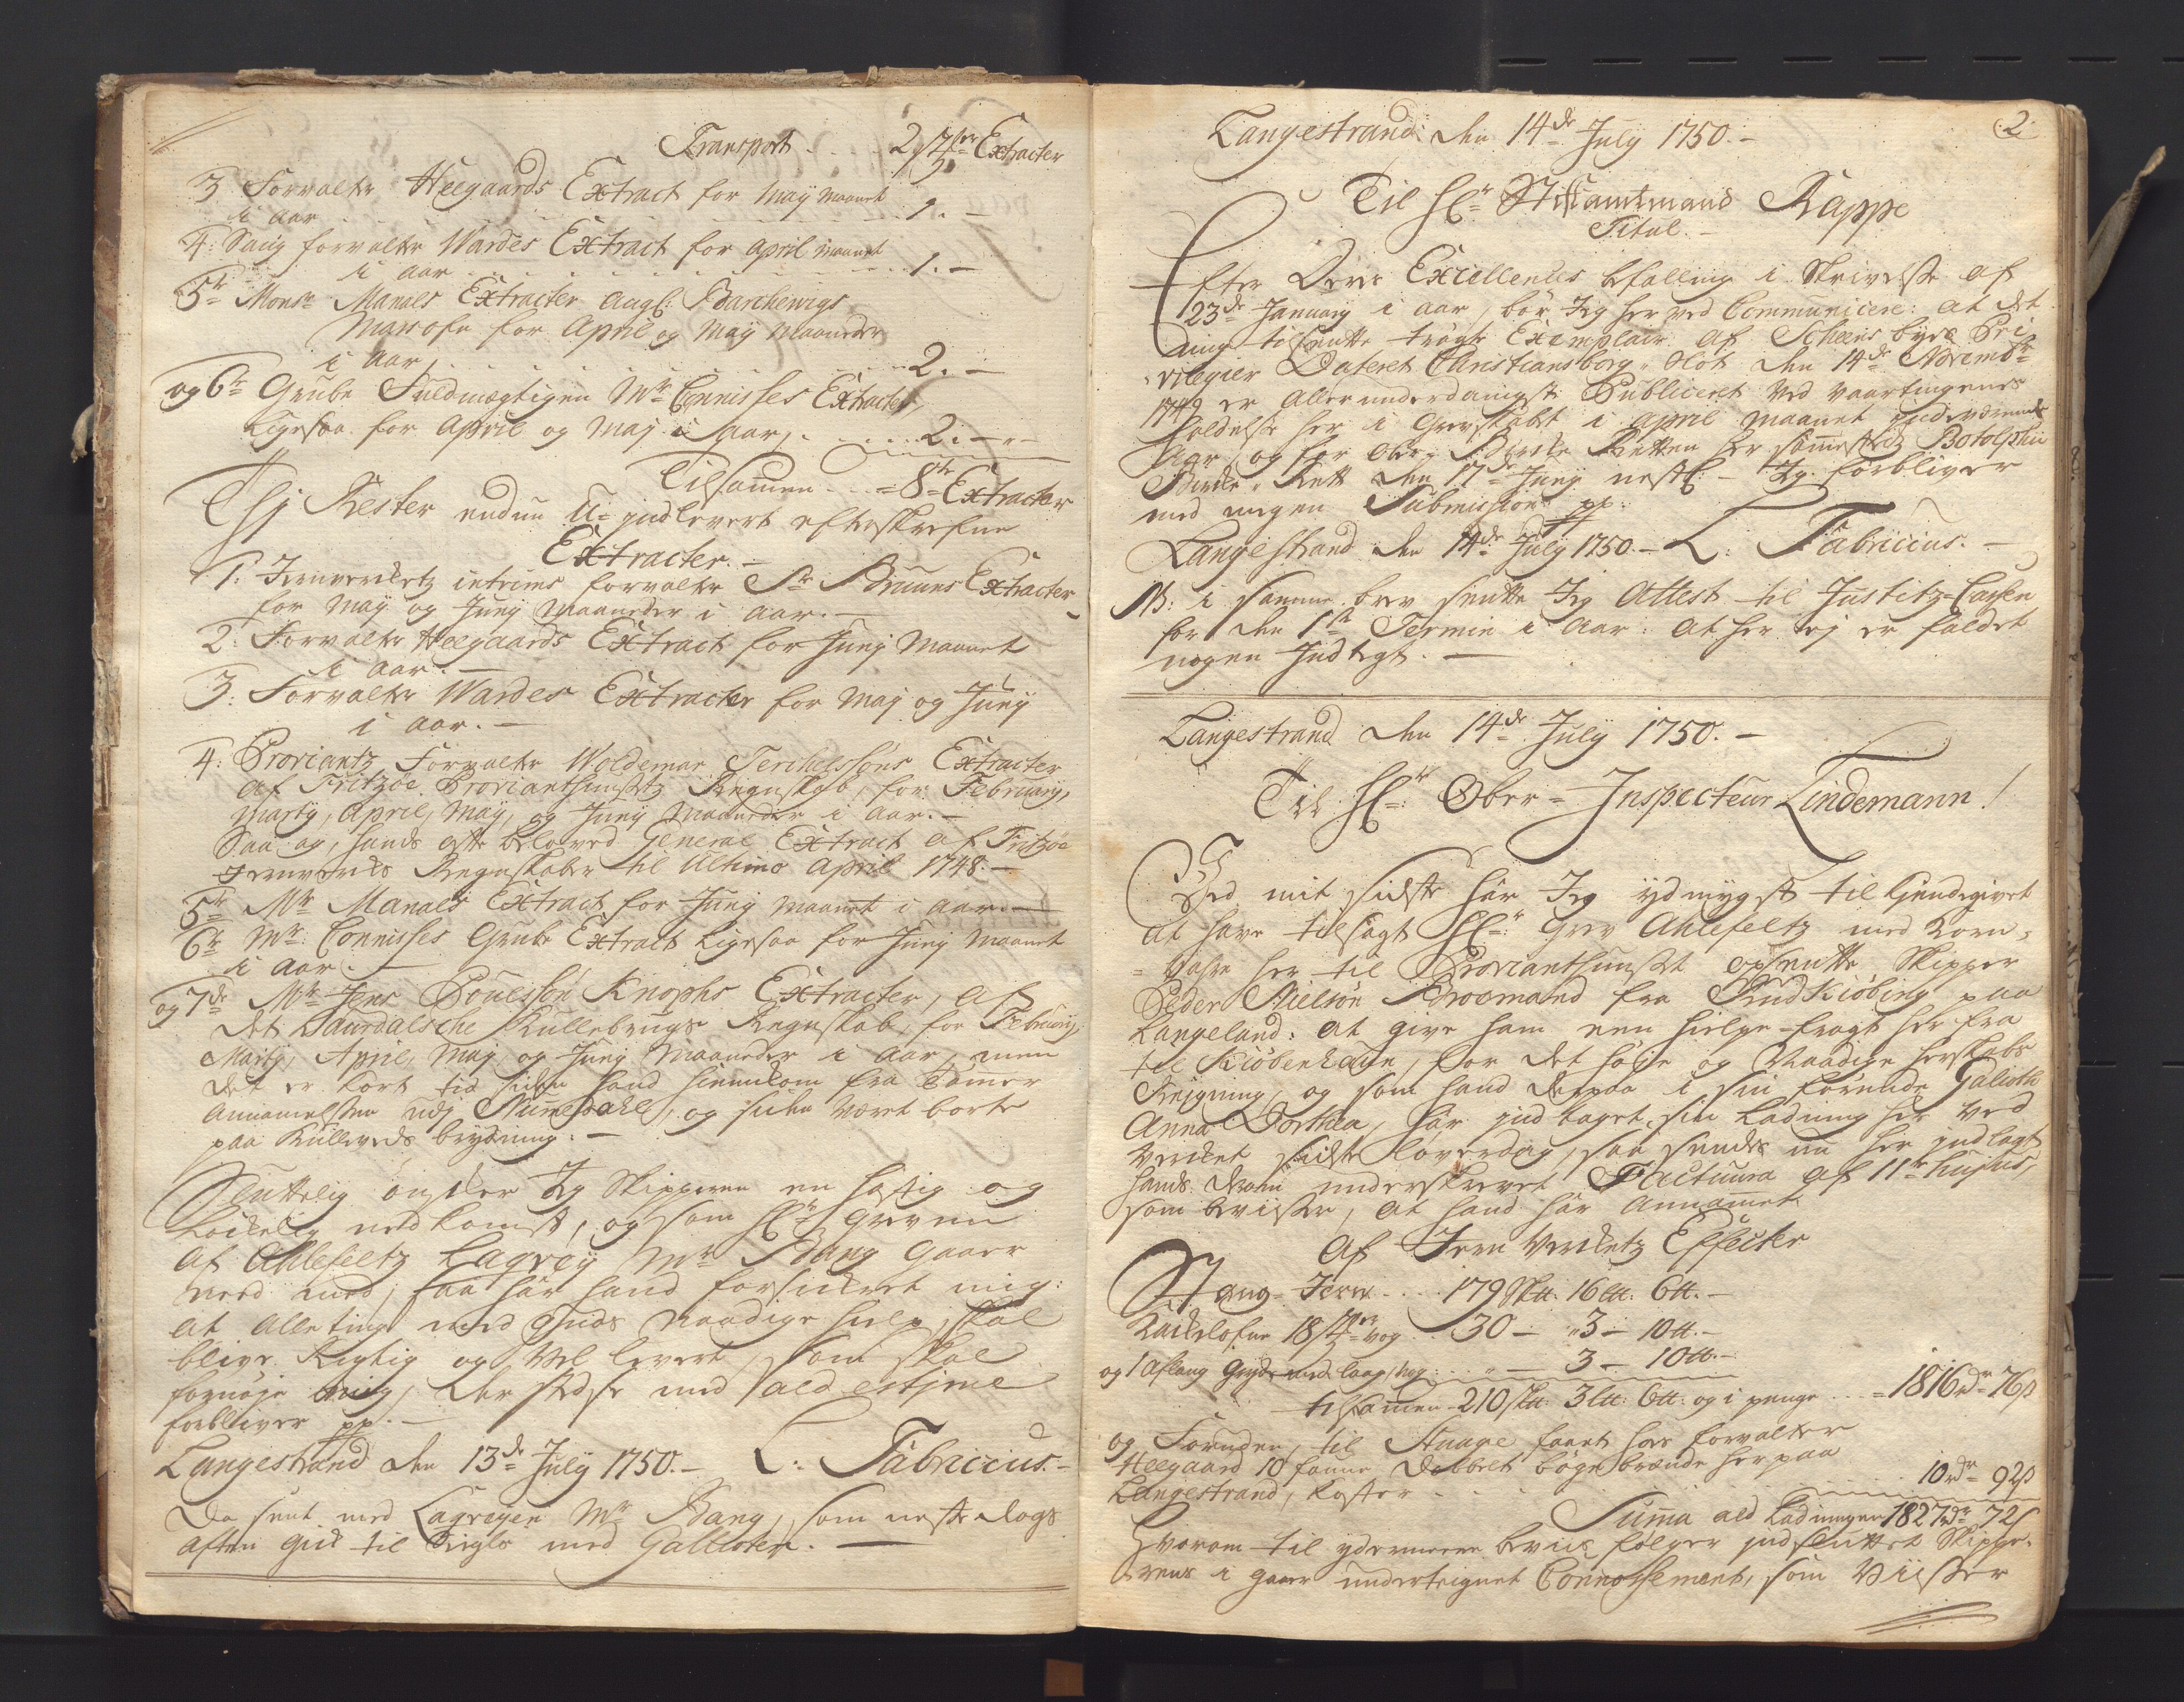 Transport . . . . 2 Extracter
3 Forvalter Heegaards Extract for Maÿ Maanet
i aar . . . . . . 1. —
4: Sauj forvalter Wardes Extract for April Maanet
i aar . . . . . . 1. —
5te Monsr Manaes Extracter ang: Barchevigs
Massofn for April og Maÿ Maaneder
i aar, . . . . . . 2. —
og 6te Grube Fuldmægtigen Mr Connisses Extracter,
ligesaa for April og Maj i aar, . . . . 2. —
Tilsammen . . = 8te Extracter
Rester endnu U-indlevert efterskrefne
Extracter. —
1. Jernverketz interims forvalter Sr Bruuns Extracter
for Maÿ og Junÿ Maaneder i aar. —
2. Forvalter Heegaards Extract for Junÿ Maanet
i aar. —
3. Forvalter Wardes Extracter for Maj og Junÿ
i aar. —
4: Proviantz Forvalter Woldemar Terchelssøns Extracter
af Fritzøe Provianthuusetz Regnskab, for Februarÿ,
Martÿ, April, Maÿ, og Junÿ Maaneder i aar. —
Saa og, hands ofte beloved General Extract af Fritzøe
Jernverks Regnskaber til Ultimo April 1748. —
5te Mr Manaes Extract for Junÿ Maanet i aar. —
6te Mr: Connisses Grube Extract ligesaa for Junÿ Maanet
i aar. —
og 7de Mr Jens Pouelssøn Knophs Extracter, af
det Laurdalsche Kullebrugs Regnskab, for Februarÿ,
Martÿ, April, Maj, og Junÿ Maaneder i aar, men
det er kort tid siden hand hiemkom fra Tømmer
Annamelsen udj Nummedahl, og siden været borte
paa Kulleveds brÿdning. —
Sluttelig ønsker Jeg Skipperen en hastig og
lÿckelig nedkomst, og som Hr Greven
af Ahlefeltz Laqveÿ Mr Bang gaaer
med ned, saa har hand forsickret mig:
at alle ting med Guds naadige hielp, skal
blive Rigtig og vel levert, som skal
fornøje mig, der stedse med ald estime
forbliver pp. —
Langestrand den 13de Julÿ 1750. — L: Fabricius. —
Da sent med Laqvejen Mr Bang, som neste dags
aften gick til Seigls med Gallioten. —

2
Langestrand den 14de Julÿ 1750. —
Til Hr Stiftamtmand Rappe
Titul. —
Efter Deres Excellences befalling i Skrivelse af
23de Januarÿ i aar, bør Jeg herved Communicere: at det
mig tilsente trögte Exemplair af Scheens byes Pri-
vilegier Dateret Christiansborg Slot den 14de Novembr
1749 er allerunderdanigst Publiceret ved Vaartingenes
holdelse her i Grevskabet i April Maanet indeværende
aar, og for Ober Birke Retten her sammesteds Botolphii
Birke Rett den 17de Junÿ nestl: — Jeg forbliver
med megen Submission pp.
Langestrand den 14de Julÿ 1750. — L: Fabricius. —
NB: i samme brev sente Jeg Attest til Justitz-Cassen
for den 1ste Termin i aar: at her ej er faldet
nogen Indtegt. —
Langestrand den 14de Julÿ 1750. —
Til Hr: Ober-Inspecteur Lindemann!
Ved mit sidste har Jeg ydmygst tilkiendegivet
at have tilsagt Hr: Grev Ahlefeltz med Korn-
Vahre her til Provianthuuset opsente Skipper
Peder Nielsøn Broemand fra Rudkiøbing paa
Langeland: at give ham een hielpe-fragt her fra
til Kiøbenhavn, for det høje og Naadige herskabs
Regning, og som hand derpaa i sin førende Galioth
Anna Dorthea, har indtaget sin ladning her ved
Verket sidste løverdag, saa sendes nu her indlagt
hands derom underskrevet Factuura af 11te hujus,
som beviiser, at hand har annammet
Af Jern Verketz Effecter
Stang-Jern . . . 179 Sk℔. 16 L℔. 6 ℔. —
Kackelofne 18 Stkr vog . . 30 — „ 3 — 10 ℔. —
og 1 aflang Gryde med laag, vog . . „ — 3 — 10 ℔. —
tilsammen 210 Sk℔. 3 L℔. 6 ℔. og i penge . . = 1816 rdr 76 ß
og Foruden, til Stuage faaet hos forvalter
Heegaard 10 faune Dobbelt bøge brænde her paa
Langestrand, koster . . . . 10 rdr 92 ß
Summa ald ladningen 1827 rdr 72 ß
Hvorom til ydermeere beviis følger indsluttet Skippe-
rens i gaar underteignet Connossement, som viiser